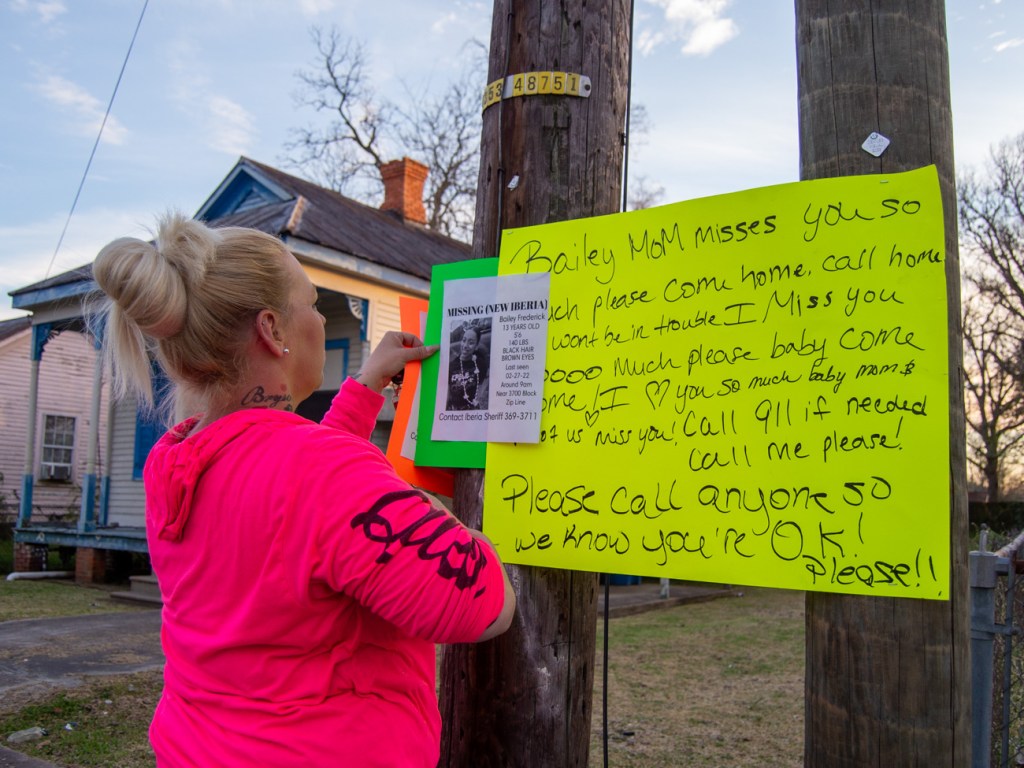 53 48751
MISSING (NEW IBERIA)
Bailey Frederick
13 YEARS OLD
5'6
140 LBS
BLACK HAIR
BROWN EYES
Last seen
02-27-22
Around 9am
Near 3700 Block
Zip Line
Contact Iberia Sheriff 369-3711
Bailey MoM misses you so
please come home. call home
wont be in trouble I Miss you
Much please baby come
I ♡ you so much baby mom &
us miss you! Call 911 if needed
Call me please!
Please call anyone so
we know you're O.K!
Please!!